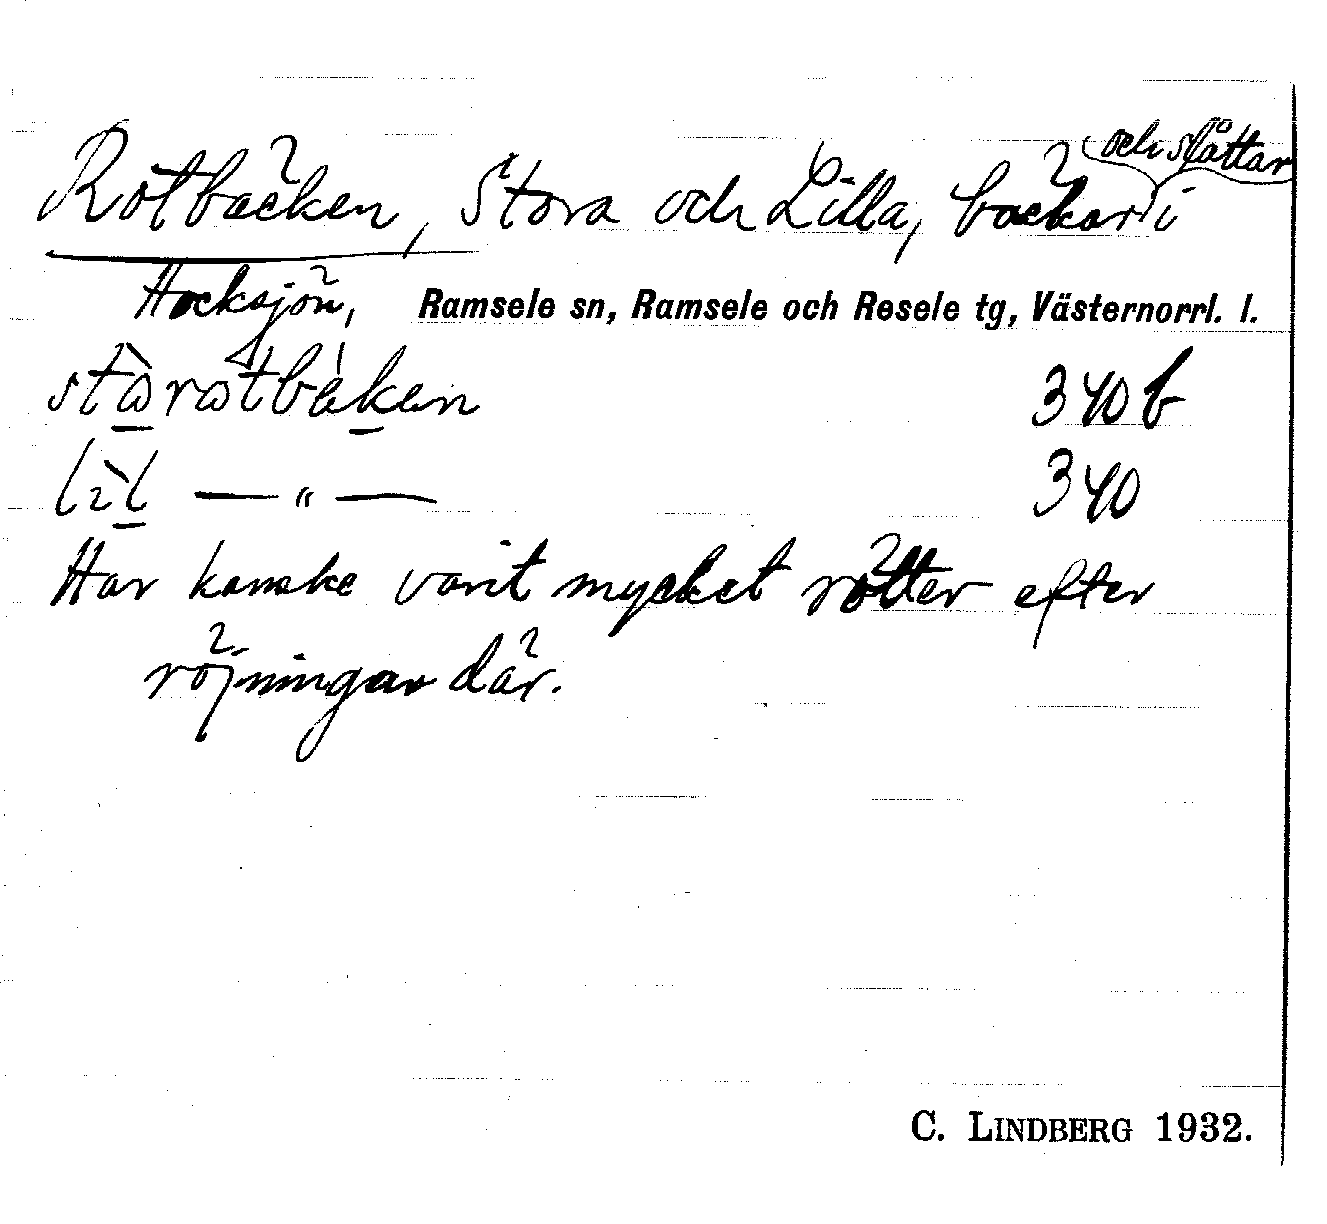 Rotbäcken, Stora och Lilla, bäckar och slåttar i
Hocksjön, Ramsele sn, Ramsele och Resele tg, Västernorrl. l.
stòrotbäken 340 b
lìl — " — 340
Har kanske varit mycket rötter efter
röjningar där.
C. LINDBERG 1932.